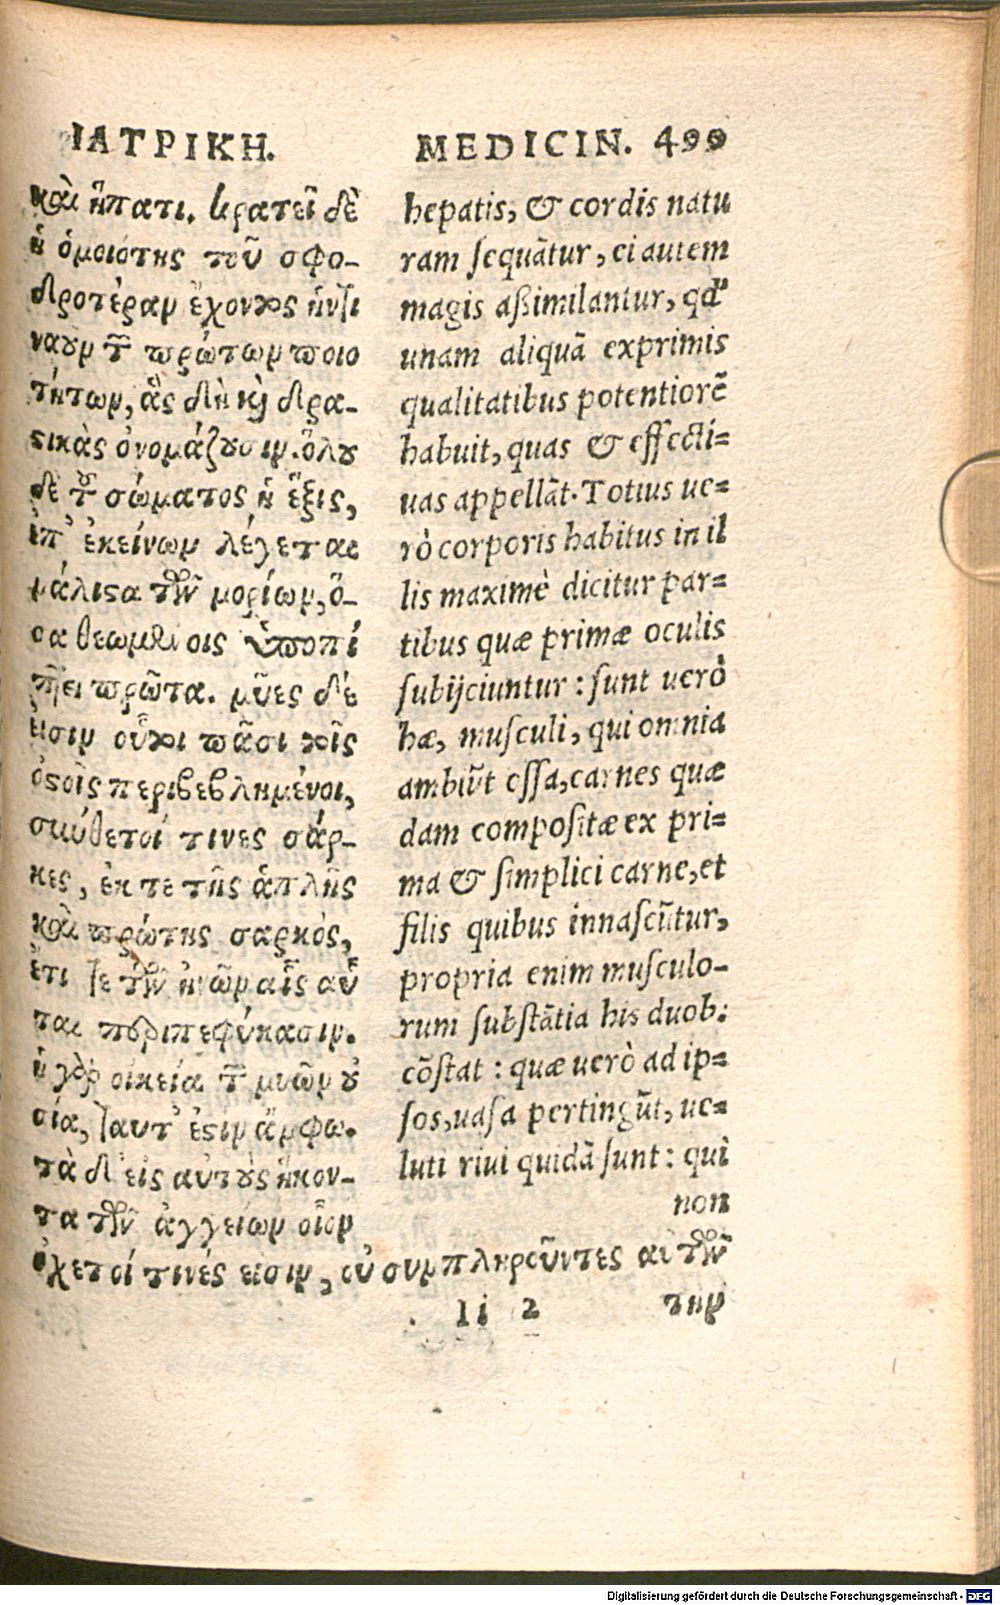 ΙΑΤΡΙΚΗ.
καὶ ἥπατι. κρατεῖ δὲ
ἡ ὁμοιότης τοῦ σφο-
δροτέραν ἔχοντος ἡντι
ναοῦν τ πρώτων ποιο
τήτων, ἃς δὴ κỳ δρα-
ϛικὰς ὀνομάζουσιν. ὅλου
δὲ τοῦ σώματος ἡ ἕξις,
ἐπ᾽ ἐκείνων λέγεται
μάλιϛα τῶν μορίων, ὅ-
σα θεωμένοις ὑποπί
πτει πρῶτα. μῦες δέ
εἰσιν οὗτοι πᾶσι τοῖς
ὀϛοῖς περιβεβλημένοι,
σύνθετοί τινες σάρ-
κες, ἔκ τε τῆς ἁπλῆς
καὶ πρώτης σαρκὸς,
ἔτι τε τῶν ἰνῶν αἷς αὗ
ται περιπεφύκασιν.
ἡ γὰρ οἰκεία τ μυῶν οὐ
σία, ταυτ᾽ ἐϛιν ἄμφω.
τὰ δ᾽ εἰς αὐτοὺς ἥκον-
τα τῶν ἀγγείων οἷον
ὀχετοί τινές εἰσιν, οὐ συμπληροῦντες αὐτῶν
MEDICIN. 499
hepatis, & cordis natu
ram sequātur, ei autem
magis aßimilantur, qd'
unam aliquā exprimis
qualitatibus potentiorē
habuit, quas & effecti=
uas appellāt. Totius ue=
rò corporis habitus in il
lis maximè dicitur par=
tibus quæ primæ oculis
subijciuntur: sunt uerò
hæ, musculi, qui omnia
ambiūt ossa, carnes quæ
dam compositæ ex pri=
ma & simplici carne, et
filis quibus innascūtur,
propria enim musculo-
rum substātia his duob:
cōstat: quæ uerò ad ip=
sos, uasa pertingūt, ue=
luti riui quidā sunt: qui
non
Ii 2 την
Digitalisierung gefördert durch die Deutsche Forschungsgemeinschaft - DFG